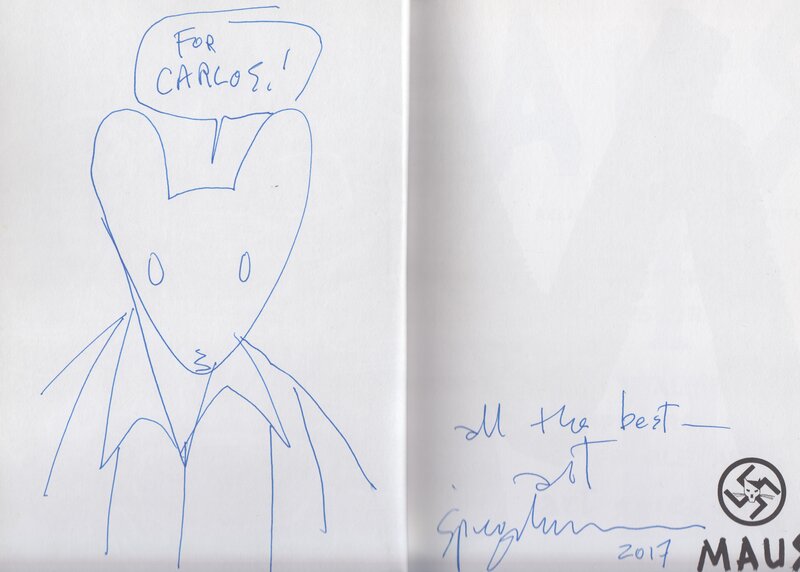 FOR
CARLOS!
all the best—
art
spiegelman
2017
MAUS